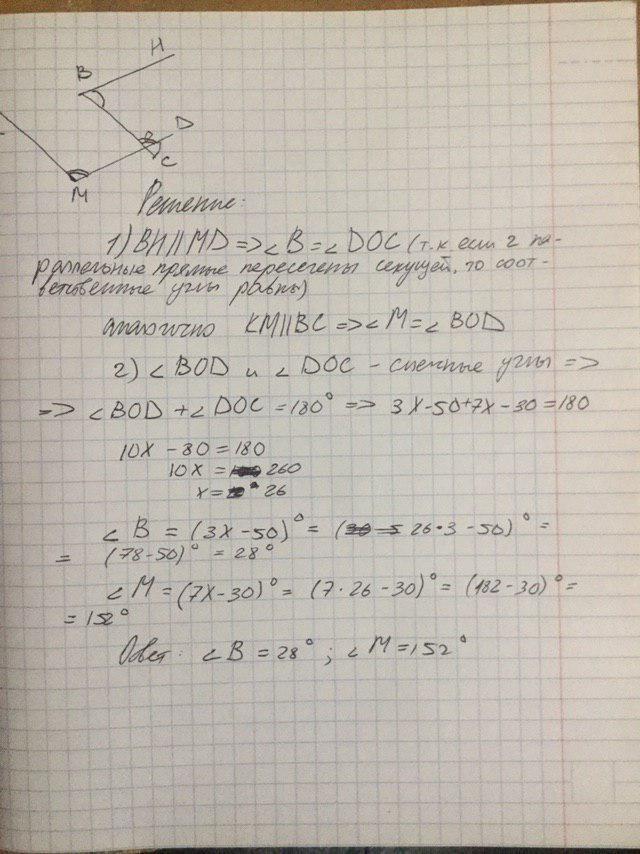 H
B
D
C
M
Решение:
1) BH||MD => ∠B = ∠DOC (т.к если 2 па-
раллельные прямые пересечены секущей, то соот-
ветственные углы равны)
аналогично KM||BC => ∠M = ∠BOD
2) ∠BOD и ∠DOC - смежные углы =>
=> ∠BOD + ∠DOC = 180° => 3x-50+7x-30=180
10x - 80 = 180
10x = 260
x = 26
∠B = (3x-50)° = (26·3-50)° =
= (78-50)° = 28°
∠M = (7x-30)° = (7·26-30)° = (182-30)° =
= 152°
Ответ: ∠B = 28°; ∠M = 152°